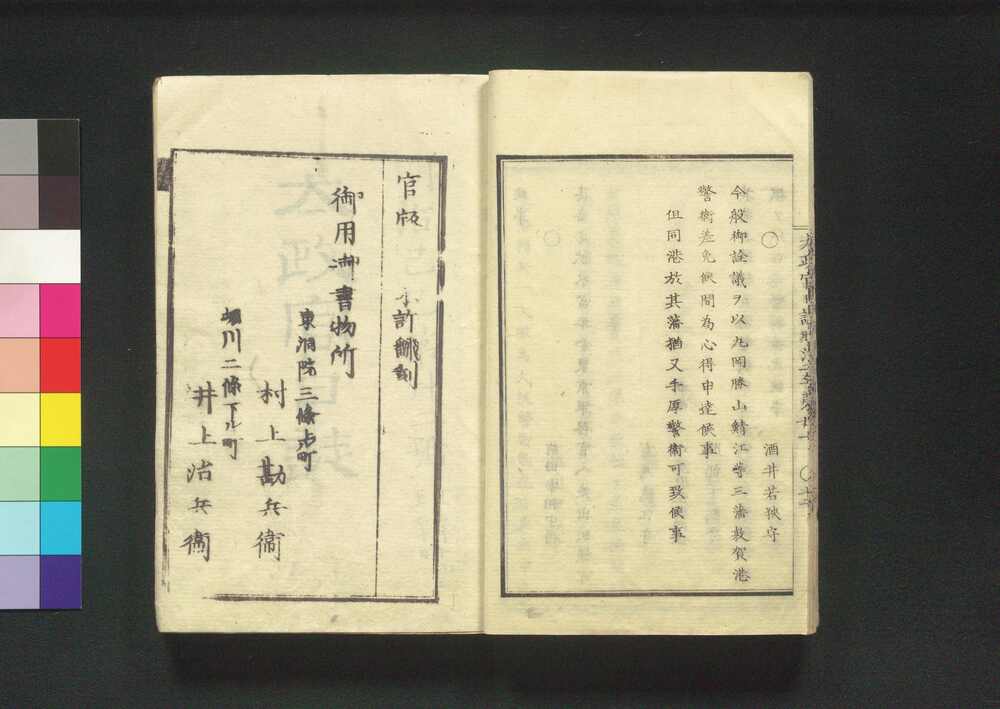 ○
酒井若狭守
今般御詮議ヲ以丸岡勝山鯖江等三藩敦賀港
警衛差免候間為心得申達候事
但同港放其藩猶又手厚警衛可致候事
官版
不許飜刻
御用御書物所
東洞院三條上ル町
村上勘兵衞
堀川二條下ル町
井上治兵衞